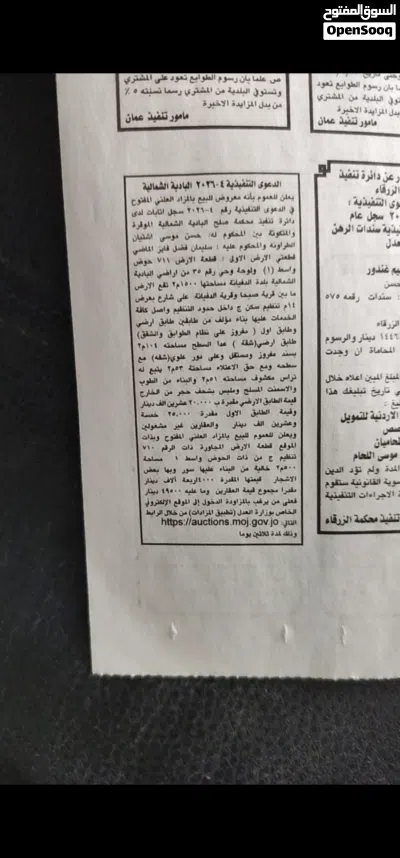 السوق المفتوح
OpenSooq
ص علما بان رسوم الطوابع تعود على المشتري
وتستوفي البلدية من المشتري رسما نسبته ٥ %
من بدل المزايدة الاخيرة
مامور تنفيذ عمان
بان رسوم الطوابع تعود
في البلدية من المشتري
ل المزايدة الاخيرة
مامور تنفيذ
الدعوى التنفيذية ٤-٢٠٢٦ البادية الشمالية
يعلن للعموم بأنه معروض للبيع بالمزاد العلني المفتوح
في الدعوى التنفيذية رقم ٤-٢٠٢٦ سجل انابات لدى
دائرة تنفيذ محكمة صلح البادية الشمالية الموقرة
والمتكونة بين المحكوم له: حسن موسى اشتيان
الطراونه والمحكوم عليه : سليمان فضل فايز الماضي
قطعتي الارض الاولى : قطعة الارض ٧١١ حوض
واسط (١) ولوحة وحي رقم ٣٥ من اراضي البادية
الشمالية بلدة الدفيانة مساحتها ١٥٠٠م٢ تقع الارض
ما بين قرية صبحا وقرية الدفيانة على شارع بعرض
١٤م تنظيم سكن ج داخل حدود التنظيم واصل كافة
الخدمات عليها بناء مؤلف من طابقين طابق ارضي
وطابق اول ( مفروز على نظام الطوابق والشقق)
طابق ارضي(شقة ) عدا السطح مساحته ١٠٤م٢
بسند مفروز ومستقل وعلى دور علوي(شقة) مع
سطحه ومع حق الاعتلاء مساحتة ٥٣م٢ يتبع له
تراس مكشوف مساحته ٥١م٢ والبناء من الطوب
والاسمنت المسلح وملبس بشحف حجر من الخارج
قيمة الطابق الارضي مقدرة ب ٢٠,٠٠٠ عشرين الف دينار
وقيمة الطابق الاول مقدرة ٢٥,٠٠٠ خمسة
وعشرين الف دينار والعقارين غير مشغولين
ويعلن للعموم للبيع بالمزاد العلني المفتوح وبذات
الموقع قطعة الارض المجاورة ذات الرقم ٧١٠
تنظيم ج من ذات الحوض واسط ١ مساحة
٥٠٠م٢ خالية من البناء عليها سور وبها بعض
الاشجار قيمتها المقدرة ٤٠٠٠اربعة آلاف دينار
مقدرا مجموع قيمة العقارين وما عليه ٤٩٥٠٠ دينار
فعلى من يرغب بالمزاودة الدخول الى الموقع الإلكتروني
الخاص بوزارة العدل (تطبيق المزادات) من خلال الرابط
التالي: https://auctions.moj.gov.jo
وذلك لمدة ثلاثين يوما
ر عن دائرة تنفيذ
الزرقاء
وى التنفيذية :
سجل عام
يذية سندات الرهن
عدل
يم غندور
حسن
: سندات رقمه ٥٧٥
الزرقاء
دينار والرسوم
المحاماة ان وجدت
لمبلغ المبين اعلاه خلال
ي تاريخ تبليغك هذا
الاردنية للتمويل
لمحاميان
موسى اللحام
المدة ولم تؤد الدين
سوية القانونية ستقوم
ة الاجراءات التنفيذية
تنفيذ محكمة الزرقاء